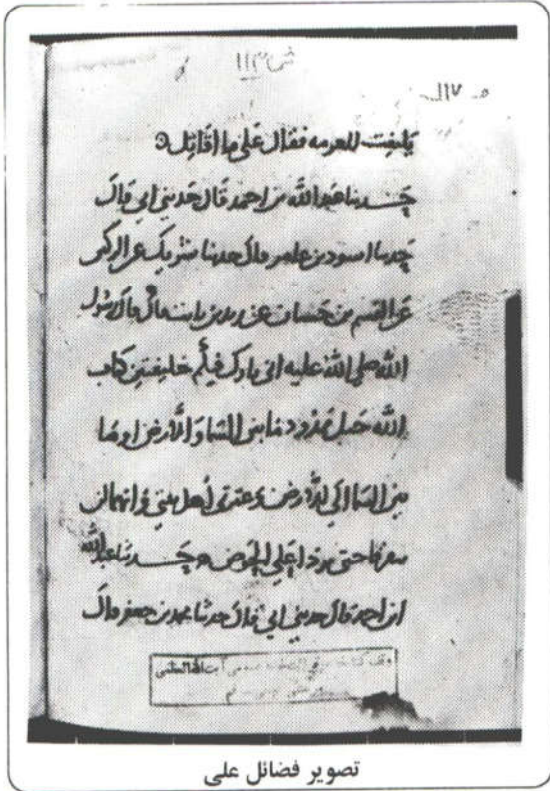 ش ١١٣
١١٧
يلتفت فقال على ما اقاتل
حدثنا عبد الله بن احمد قال حدثني ابي قال
حدثنا اسود بن عامر قال حدثنا شريك عن الركين
عن القسم بن حسان عن زيد بن ثابت قال قال رسول
الله صلى الله عليه اني تارك فيكم خليفتين كتاب
الله حبل ممدود ما بين السما والارض او ما
بين السما الى الارض وعترتي اهل بيتي وانهما لن
يتفرقا حتى يردا علي الحوض حدثنا عبد الله
ابن احمد قال حدثني ابي قال حدثنا محمد بن جعفر قال
وقف كتابخانه عمومى آيت الله العظمى
قم
تصویر فضائل علی